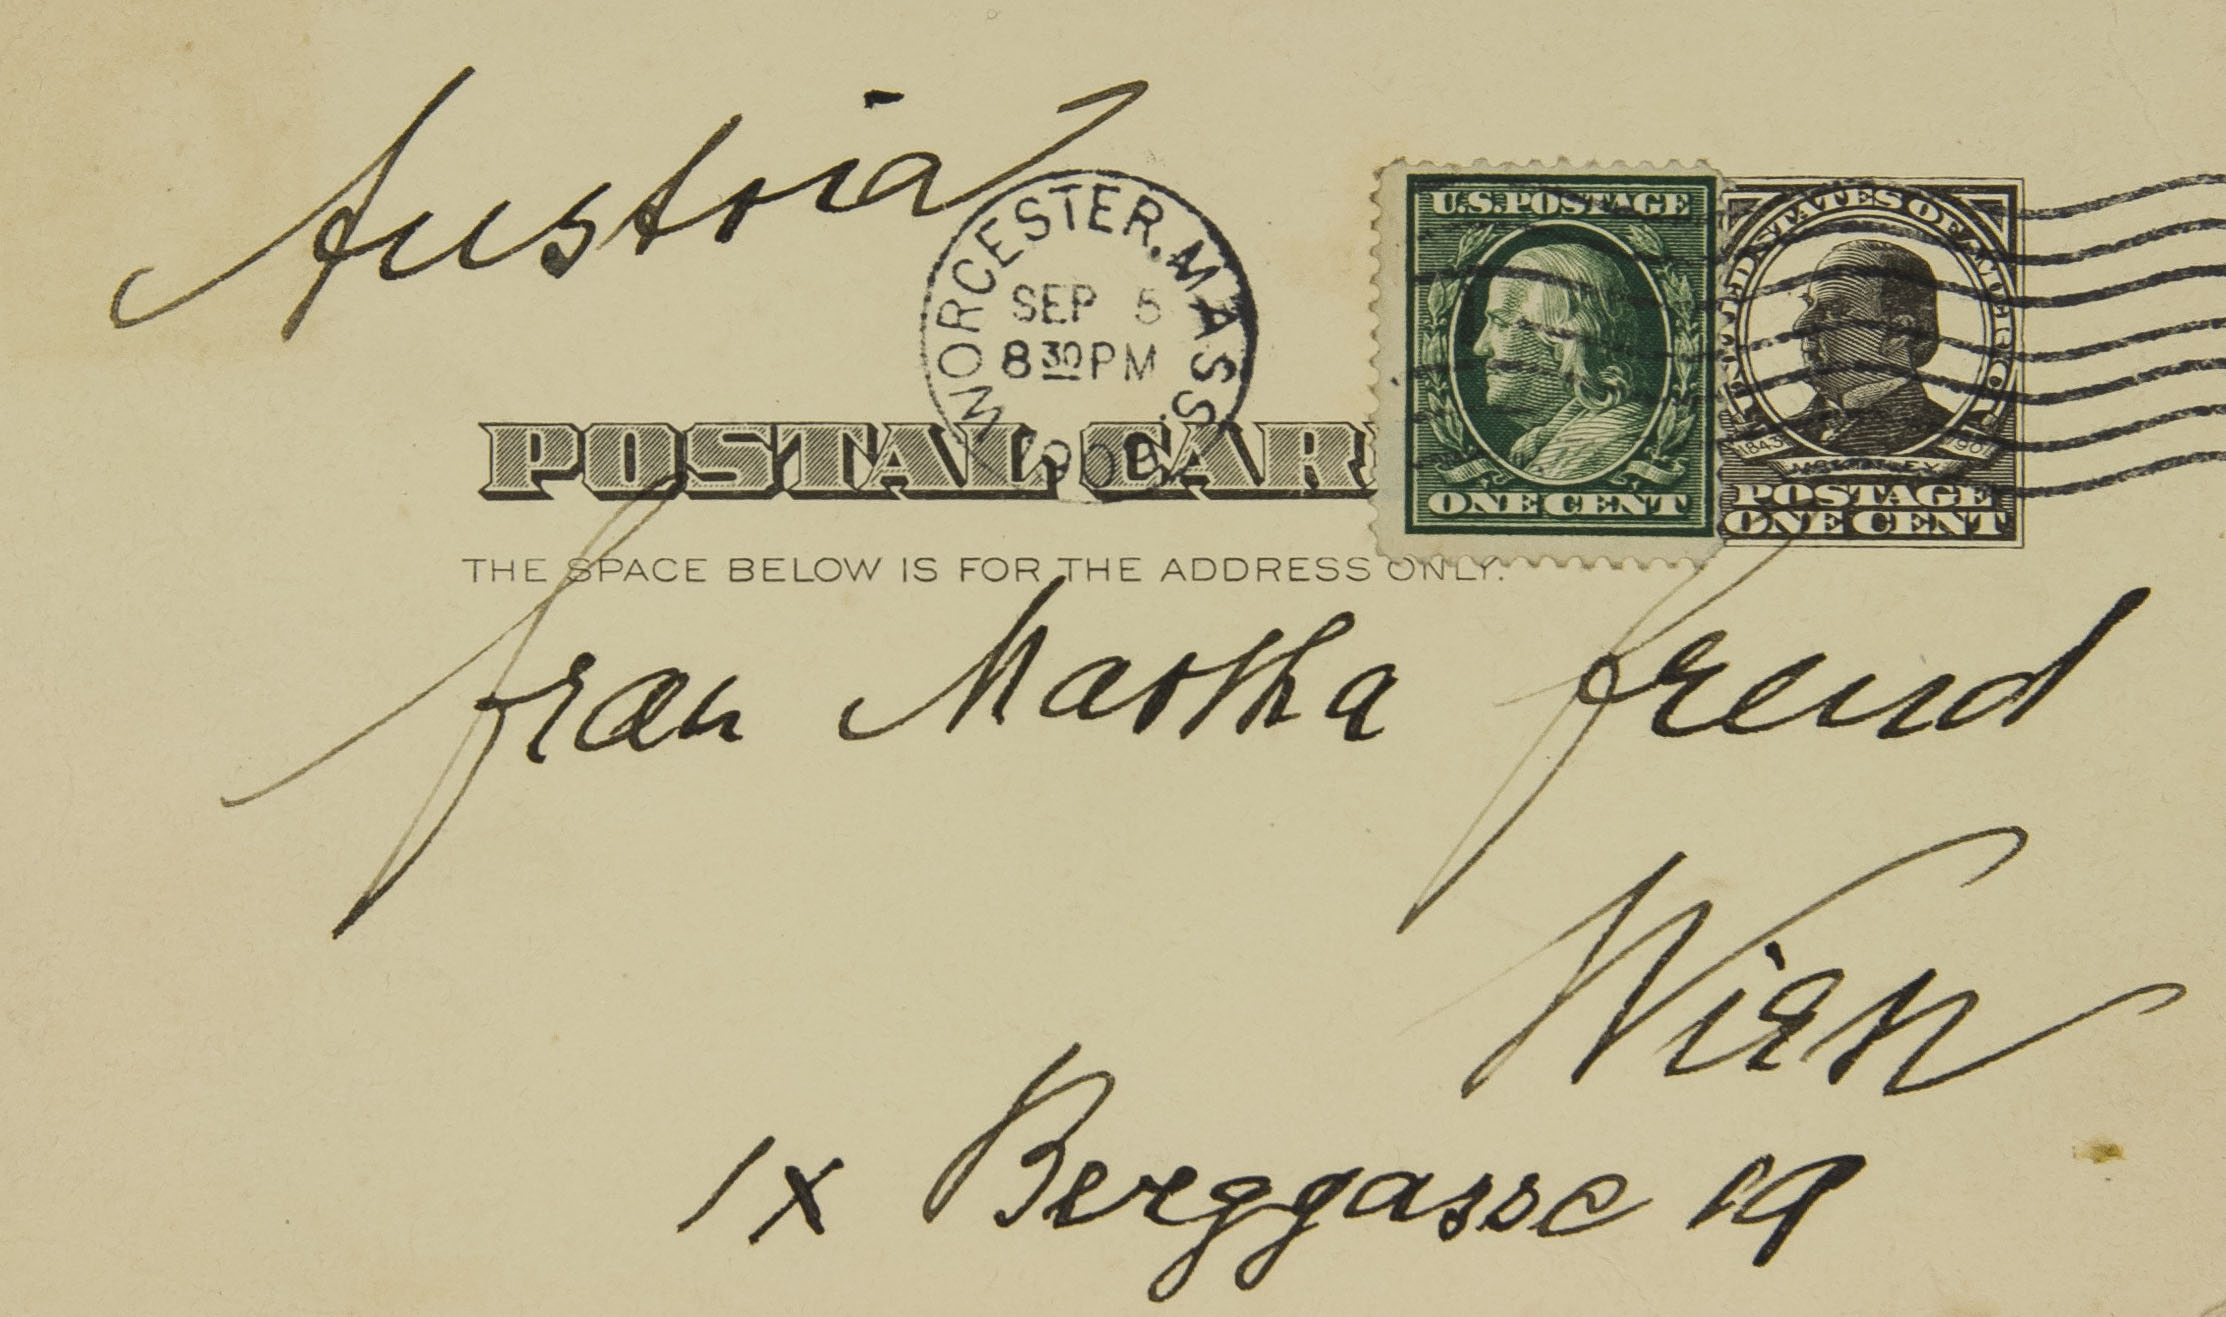 Austria
WORCESTER, MASS.
SEP 5
8 30 PM
1909
U.S. POSTAGE
ONE CENT
UNITED STATES OF AMERICA
1843 1901
MCKINLEY
POSTAGE
ONE CENT
POSTAL CAR
THE SPACE BELOW IS FOR THE ADDRESS ONLY.
Frau Martha Freud
Wien
IX Berggasse 19